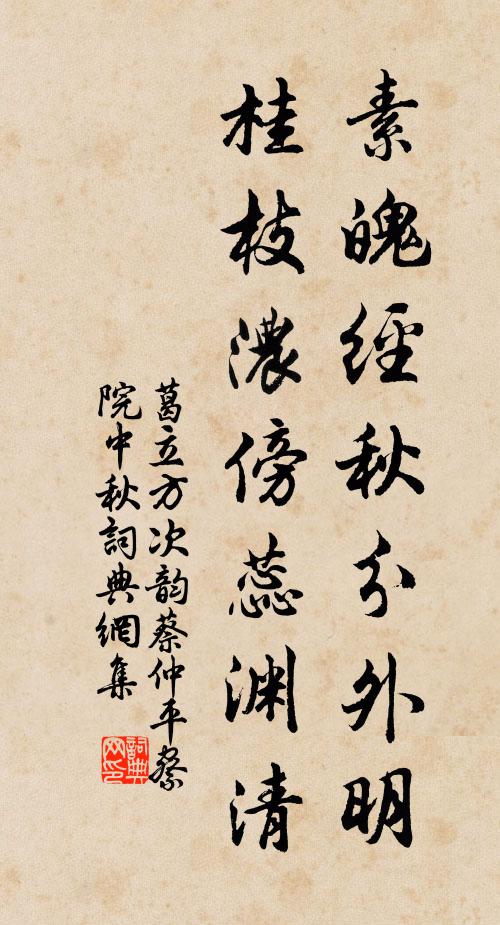 素魄經秋分外明
桂枝濃傍蕊淵清
葛立方次韵蔡仲平察
院中秋詞典網集
詞典
网印